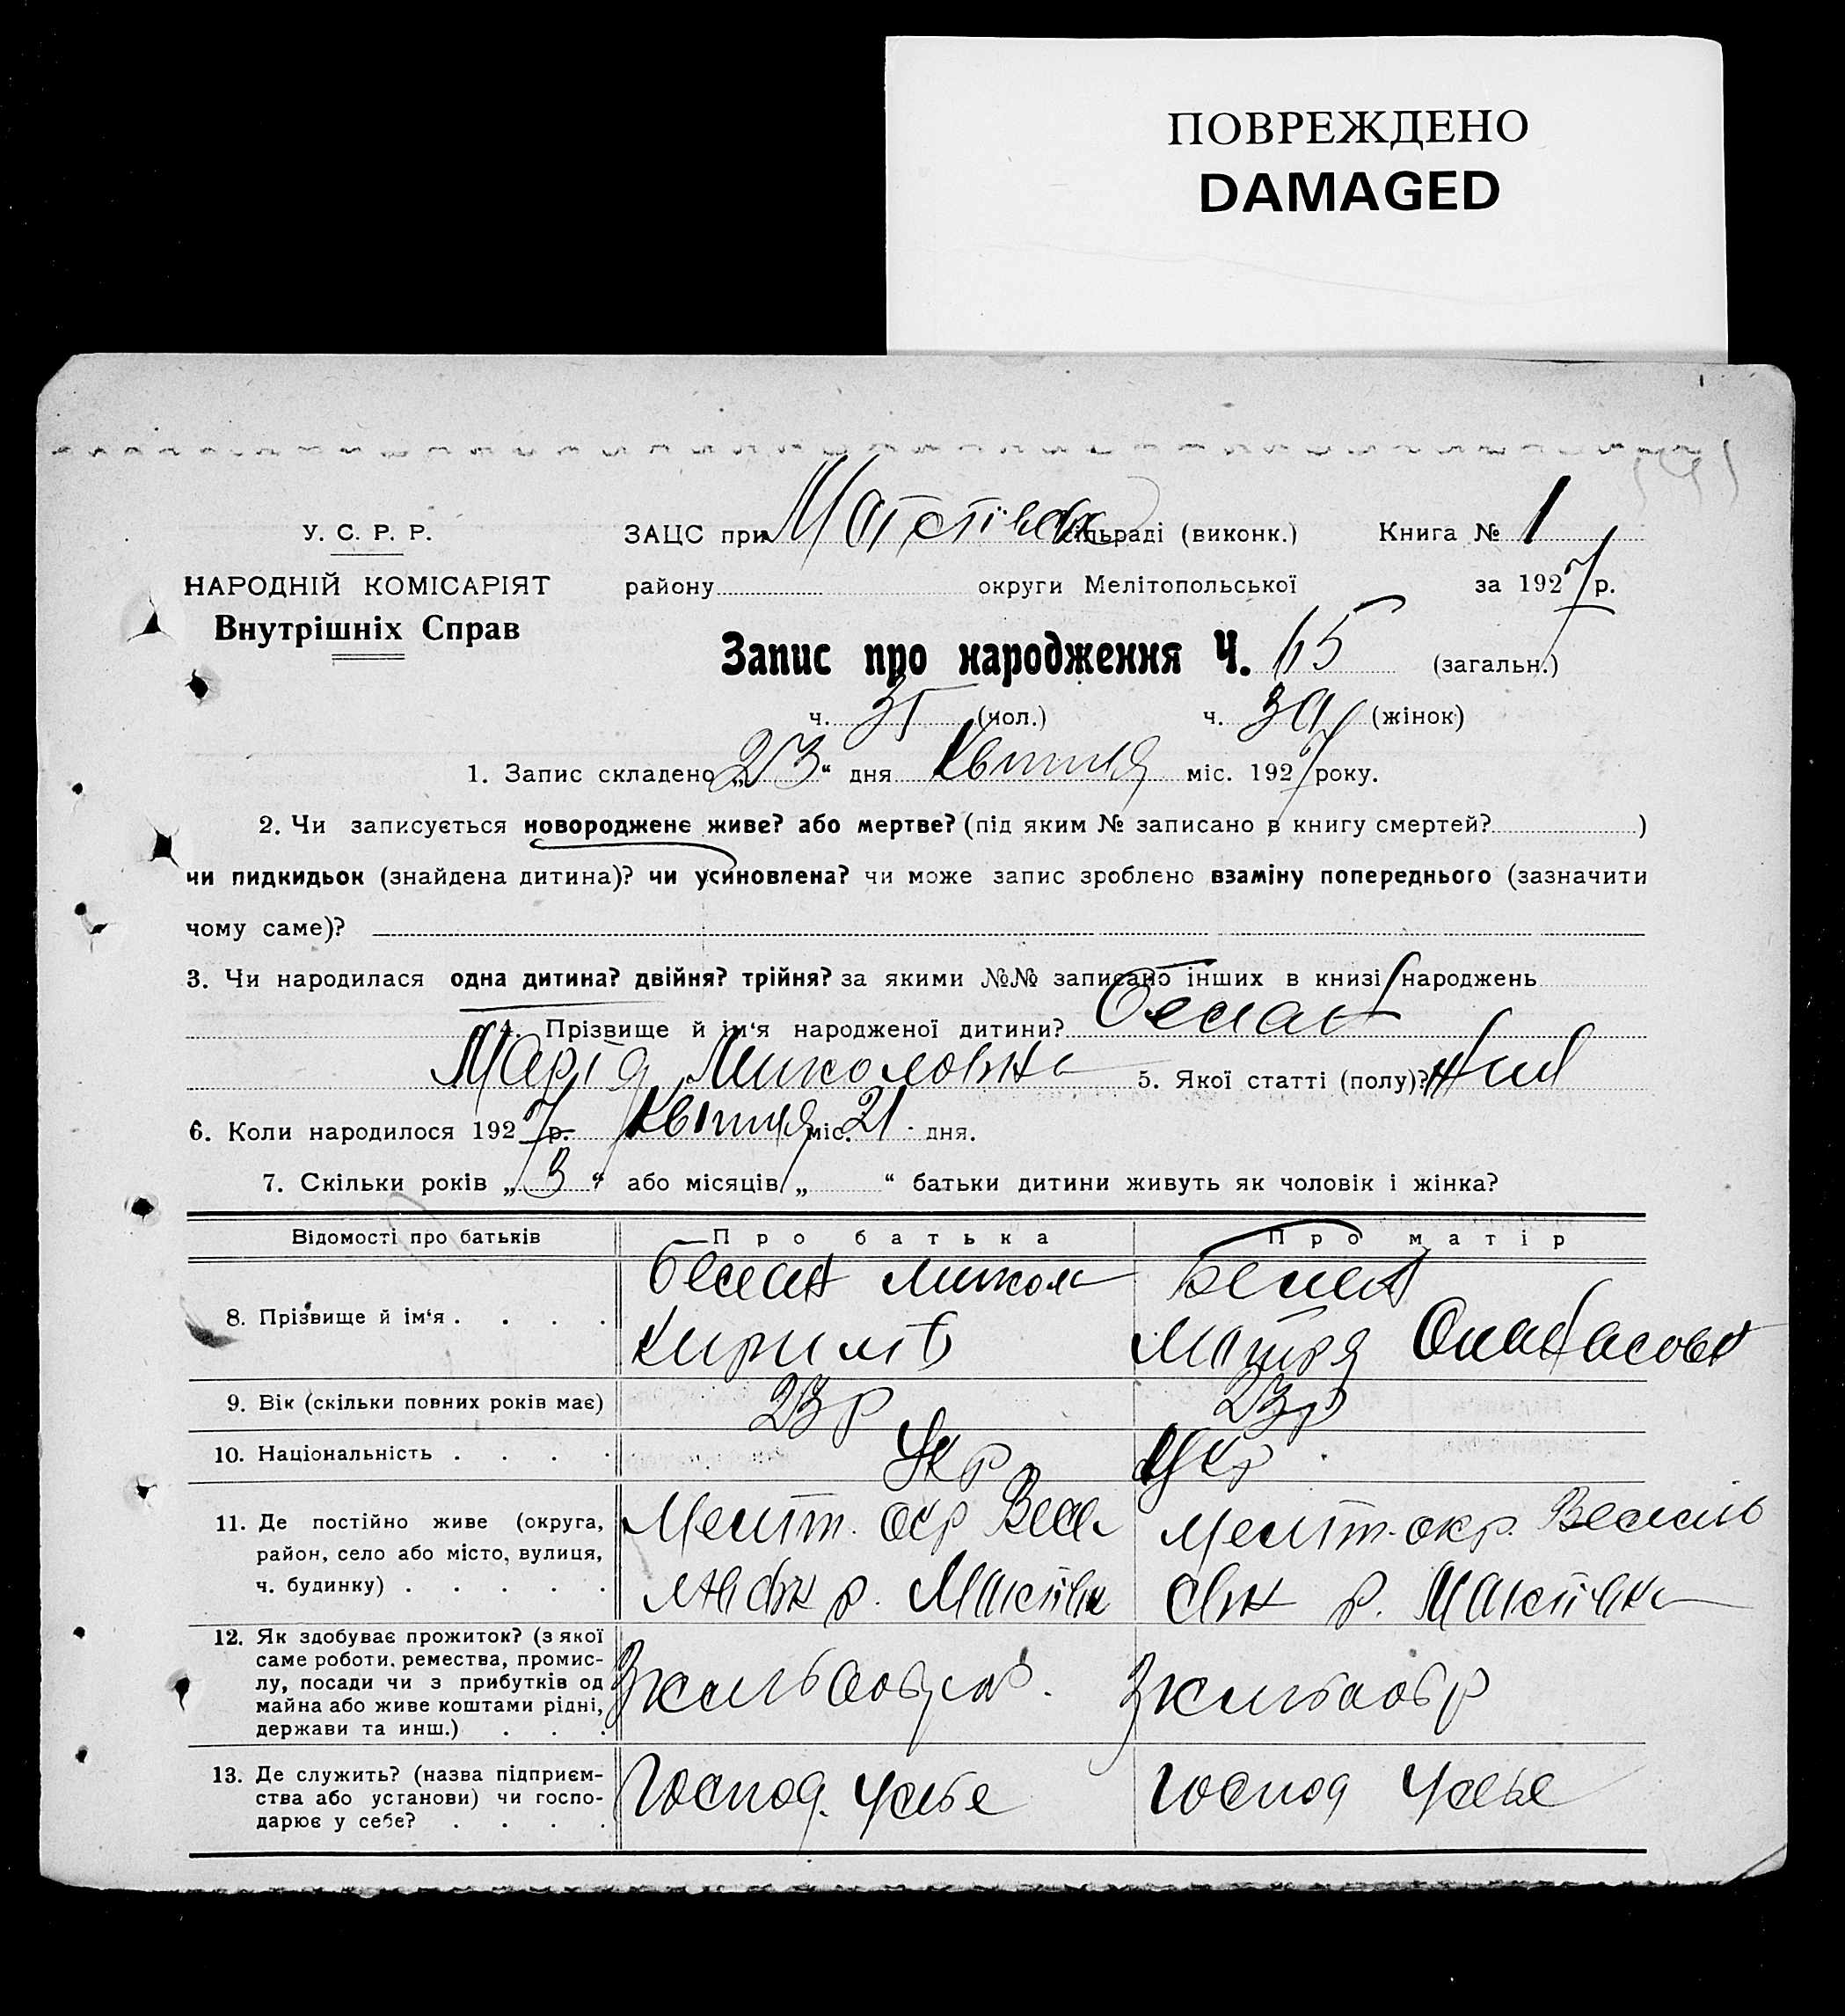 ПОВРЕЖДЕНО
DAMAGED
У. С. Р. Р.
НАРОДНІЙ КОМІСАРІЯТ
Внутрішніх Справ
ЗАЦС при сільраді (виконк.) Книга № 1
району округи Мелітопольської за 1927 р.
Запис про народження Ч. 65 (загальн.)
ч. 35 (чол.) ч. 30 (жінок)
1. Запис складено „23“ дня Квітня міс. 1927 року.
2. Чи записується новороджене живе? або мертве? (під яким № записано в книгу смертей? )
чи пидкидьок (знайдена дитина)? чи усиновлена? чи може запис зроблено взаміну попереднього (зазначити
чому саме)?
3. Чи народилася одна дитина? двійня? трійня? за якими №№ записано інших в книзі народжень
4. Прізвище й ім'я народженої дитини?
Марія Миколовна 5. Якої статті (полу)? жін
6. Коли народилося 1927 р. Квітня міс. 21 дня.
7. Скільки років „3“ або місяців „ “ батьки дитини живуть як чоловік і жінка?
Відомості про батьків Про батька Про матір
8. Прізвище й ім'я . . . .
Микола
Кирилов Мотря
9. Вік (скільки повних років має) 23 р 23 р
10. Національність . . . . Укр Укр
11. Де постійно живе (округа, Меліт. окр Меліт. окр.
район, село або місто, вулиця,
ч. будинку) . . . . . р. р.
12. Як здобуває прожиток? (з якої
саме роботи, ремества, промис-
лу, посади чи з прибутків од
майна або живе коштами рідні,
держави та инш.) . . .
13. Де служить? (назва підприєм-
ства або установи) чи госпо- Господ. усебе Господ усебе
дарює у себе? . . . .